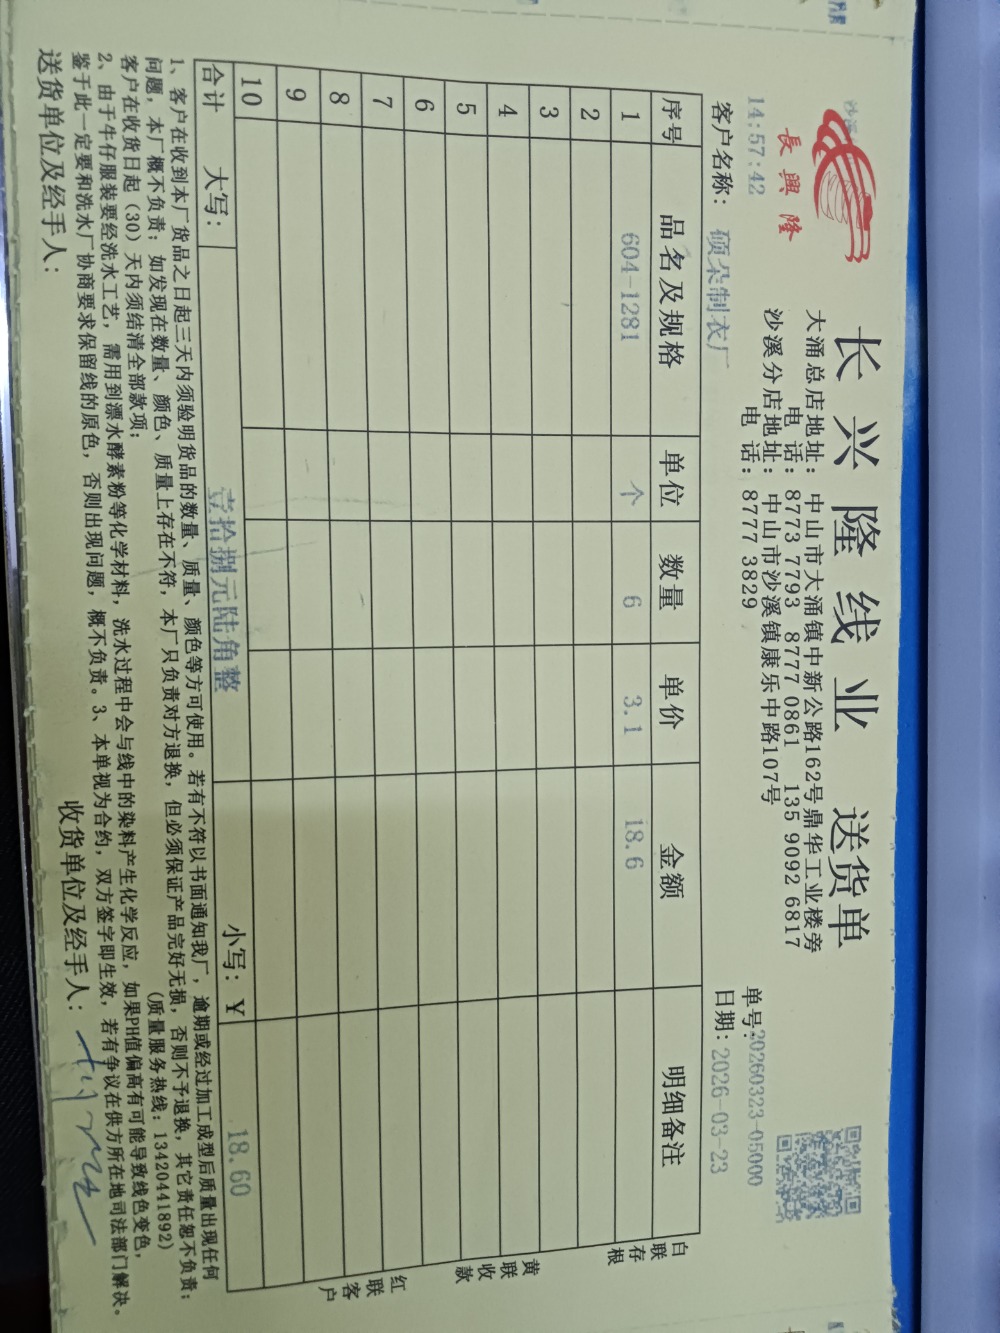 長興隆
长兴隆线业 送货单
大涌总店地址：中山市大涌镇中新公路162号鼎华工业楼旁
电 话：8773 7793 8777 0861 135 9092 6817
沙溪分店地址：中山市沙溪镇康乐中路107号
电 话：8777 3829
14:57:42
单号:20260323-05000
客户名称：硕朵制衣厂
日期：2026-03-23
序号 品名及规格 单位 数量 单价 金额 明细备注
1 604-1281 个 6 3.1 18.6
2
3
4
5
6
7
8
9
10
合计 大写： 壹拾捌元陆角整 小写：¥ 18.60
白联存根
黄联收款
红联客户
1、客户在收到本厂货品之日起三天内须验明货品的数量、质量、颜色等方可使用。若有不符以书面通知我厂，逾期或经过加工成型后质量出现任何
问题，本厂概不负责；如发现在数量、颜色、质量上存在不符，本厂只负责对方退换，但必须保证产品完好无损，否则不予退换，其它责任恕不负责；
客户在收货日起（30）天内须结清全部款项； (质量服务热线：13420441892)
2、由于牛仔服装要经洗水工艺，需用到漂水酵素粉等化学材料，洗水过程中会与线中的染料产生化学反应，如果PH值偏高有可能导致线色变色，
鉴于此一定要和洗水厂协商要求保留线的原色，否则出现问题，概不负责。3、本单视为合约，双方签字即生效，若有争议在供方所在地司法部门解决。
送货单位及经手人： 收货单位及经手人：